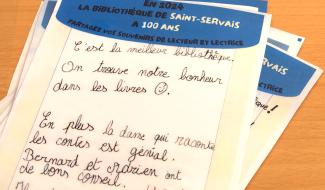 EN 2024
LA BIBLIOTHÈQUE DE SAINT-SERVAIS
A 100 ANS
PARTAGEZ VOS SOUVENIRS DE LECTEUR ET LECTRICE
C'est la meilleur bibliothèque.
On trouve notre bonheur
dans les livres ☺.
En plus la dame qui raconte
les contes est génial.
Bernard et Adrien ont
de bons conseil.
SERVAIS
LECTRICE